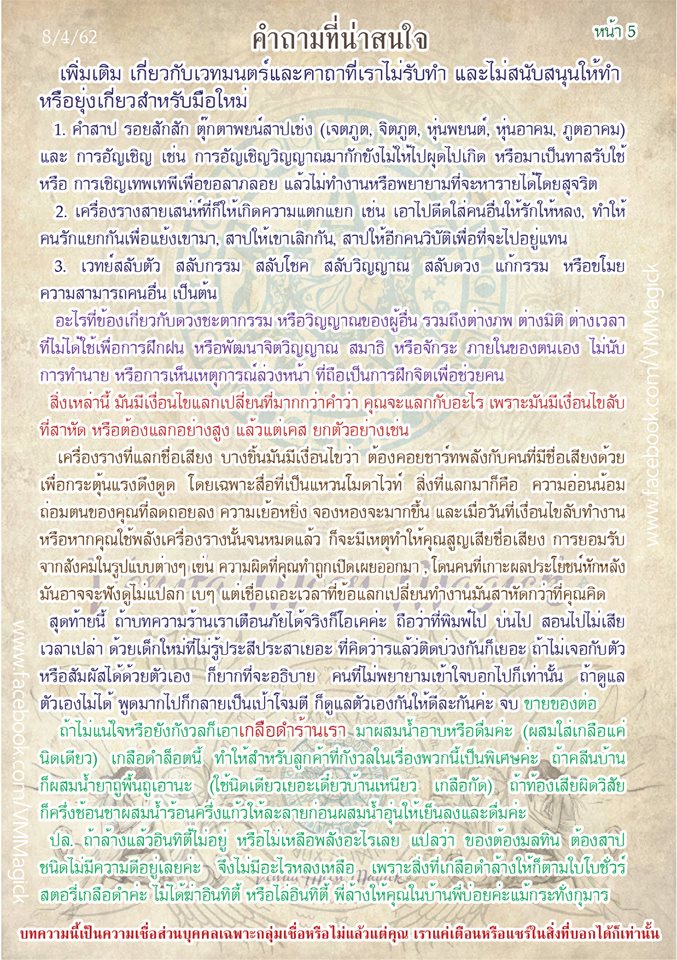 8/4/62
คำถามที่น่าสนใจ
หน้า 5
เพิ่มเติม เกี่ยวกับเวทมนตร์และคาถาที่เราไม่รับทำ และไม่สนับสนุนให้ทำ
หรือยุ่งเกี่ยวสำหรับมือใหม่
1. คำสาป รอยสักสัก ตุ๊กตาพยน์สาปเช่ง (เจตภูต, จิตภูต, หุ่นพยนต์, หุ่นอาคม, ภูตอาคม)
และ การอัญเชิญ เช่น การอัญเชิญวิญญาณมากักขังไม่ให้ไปผุดไปเกิด หรือมาเป็นทาสรับใช้
หรือ การเชิญเทพเทพีเพื่อขอลาภลอย แล้วไม่ทำงานหรือพยายามที่จะหารายได้โดยสุจริต
2. เครื่องรางสายเสน่ห์ที่ก็ให้เกิดความแตกแยก เช่น เอาไปดีดใส่คนอื่นให้รักให้หลง, ทำให้
คนรักแยกกันเพื่อแย้งเขามา, สาปให้เขาเลิกกัน, สาปให้อีกคนวิบัติเพื่อที่จะไปอยู่แทน
3. เวทย์สลับตัว สลับกรรม สลับโชค สลับวิญญาณ สลับดวง แก้กรรม หรือขโมย
ความสามารถคนอื่น เป็นต้น
อะไรที่ข้องเกี่ยวกับดวงชะตากรรม หรือวิญญาณของผู้อื่น รวมถึงต่างภพ ต่างมิติ ต่างเวลา
ที่ไม่ได้ใช้เพื่อการฝึกฝน หรือพัฒนาจิตวิญญาณ สมาธิ หรือจักระ ภายในของตนเอง ไม่นับ
การทำนาย หรือการเห็นเหตุการณ์ล่วงหน้า ที่ถือเป็นการฝึกจิตเพื่อช่วยคน
สิ่งเหล่านี้ มันมีเงื่อนไขแลกเปลี่ยนที่มากกว่าคำว่า คุณจะแลกกับอะไร เพราะมันมีเงื่อนไขลับ
ที่สาหัด หรือต้องแลกอย่างสูง แล้วแต่เคส ยกตัวอย่างเช่น
เครื่องรางที่แลกชื่อเสียง บางชิ้นมันมีเงื่อนไขว่า ต้องคอยชาร์ทพลังกับคนที่มีชื่อเสียงด้วย
เพื่อกระตุ้นแรงดึงดูด โดยเฉพาะสื่อที่เป็นแหวนโมดาไวท์ สิ่งที่แลกมาก็คือ ความอ่อนน้อม
ถ่อมตนของคุณที่ลดถอยลง ความเย้อหยิ่ง จองหองจะมากขึ้น และเมื่อวันที่เงื่อนไขลับทำงาน
หรือหากคุณใช้พลังเครื่องรางนั้นจนหมดแล้ว ก็จะมีเหตุทำให้คุณสูญเสียชื่อเสียง การยอมรับ
จากสังคมในรูปแบบต่างๆ เช่น ความผิดที่คุณทำถูกเปิดเผยออกมา , โดนคนที่เกาะผลประโยชน์หักหลัง
มันอาจจะฟังดูไม่แปลก เบๆ แต่เชื่อเถอะเวลาที่ข้อแลกเปลี่ยนทำงานมันสาหัดกว่าที่คุณคิด
สุดท้ายนี้ ถ้าบทความร้านเราเตือนภัยได้จริงก็โอเคค่ะ ถือว่าที่พิมพ์ไป บ่นไป สอนไปไม่เสีย
เวลาเปล่า ด้วยเด็กใหม่ที่ไม่รู้ประสีประสาเยอะ ที่คิดว่ารแล้วติดบ่วงกันก็เยอะ ถ้าไม่เจอกับตัว
หรือสัมผัสได้ด้วยตัวเอง ก็ยากที่จะอธิบาย คนที่ไม่พยายามเข้าใจบอกไปก็เท่านั้น ถ้าดูแล
ตัวเองไม่ได้ พูดมากไปก็กลายเป็นเป้าโจมตี ก็ดูแลตัวเองกันให้ดีละกันค่ะ จบ ขายของต่อ
ถ้าไม่แน่ใจหรือยังกังวลก็เอาเกลือดำร้านเรา มาผสมน้ำอาบหรือดื่มค่ะ (ผสมใส่เกลือแค่
นิดเดียว) เกลือดำล็อตนี้ ทำให้สำหรับลูกค้าที่กังวลในเรื่องพวกนี้เป็นพิเศษค่ะ ถ้าคลีนบ้าน
ก็ผสมน้ำยาถูพื้นถูเอานะ (ใช้นิดเดียวเยอะเดี๋ยวบ้านเหนียว เกลือกัด) ถ้าท้องเสียผิดวิสัย
ก็ครึ่งช้อนชาผสมน้ำร้อนครึ่งแก้วให้ละลายก่อนผสมน้ำอุ่นให้เย็นลงและดื่มค่ะ
ปล. ถ้าล้างแล้วอินทิตี้ไม่อยู่ หรือไม่เหลือพลังอะไรเลย แปลว่า ของต้องมลทิน ต้องสาป
ชนิดไม่มีความดีอยู่เลยค่ะ จึงไม่มีอะไรหลงเหลือ เพราะสิ่งที่เกลือดำล้างให้ก็ตามใบไบชัวร์
สตอรี่เกลือดำค่ะ ไม่ได้ฆ่าอินทิตี้ หรือไล่อินทิตี้ พี่ล้างให้คุณในบ้านพี่บ่อยค่ะแม้กระทั่งกุมาร
บทความนี้เป็นความเชื่อส่วนบุคคลเฉพาะกลุ่มเชื่อหรือไม่แล้วแต่คุณ เราแค่เตือนหรือแชร์ในสิ่งที่บอกได้ก็เท่านั้น
www.facebook.com/VMMagick
www.facebook.com/VMMagick